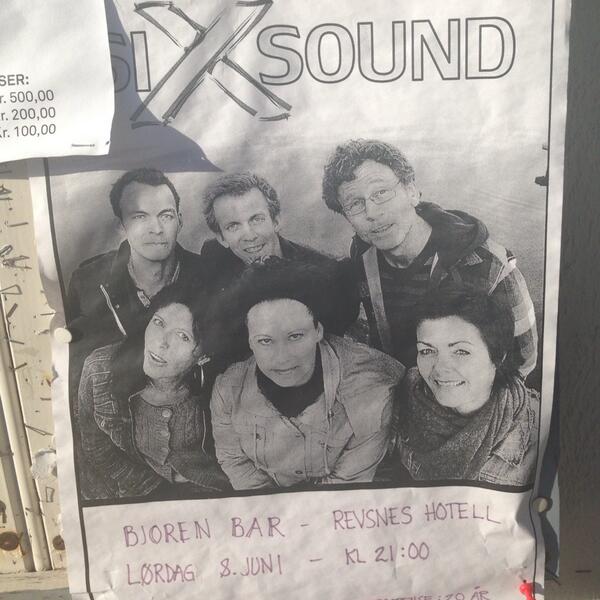 SIX SOUND
SER:
r. 500,00
r. 200,00
Kr. 100,00
BJOREN BAR - REVSNES HOTELL
LØRDAG 8. JUNI - KL 21:00
: 20 ÅR